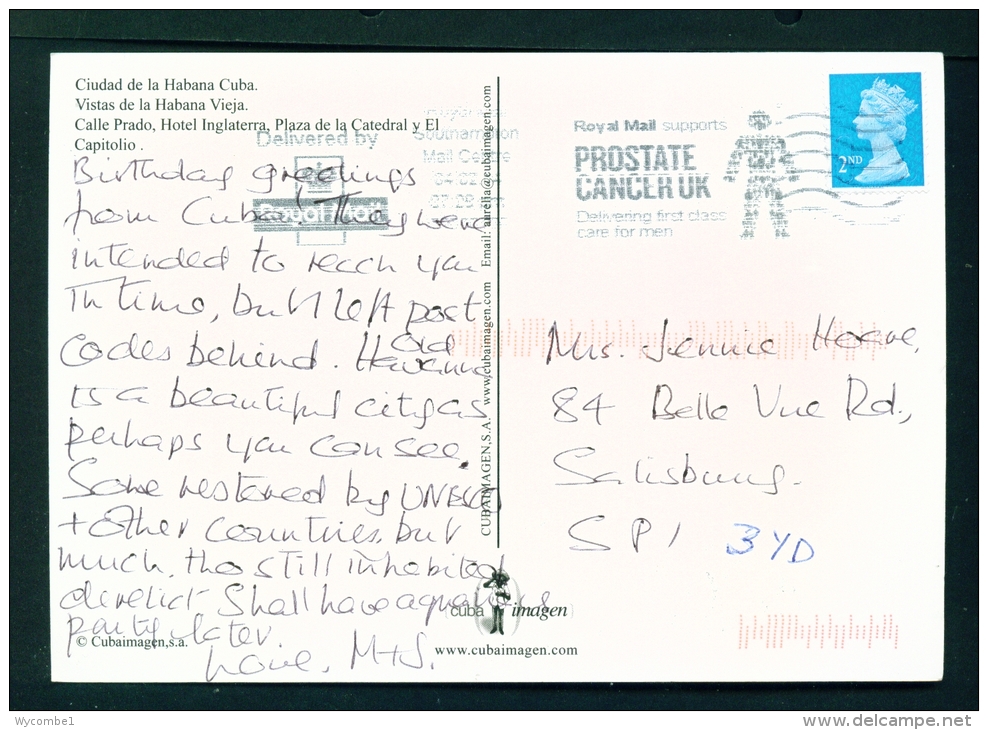 Ciudad de la Habana Cuba.
Vistas de la Habana Vieja.
Calle Prado, Hotel Inglaterra, Plaza de la Catedral y El
Capitolio .
Birthday greetings
from Cuba! They were
intended to reach you
in time, but I left post
codes behind. Old Havanna
is a beautiful city as
perhaps you can see.
Some restored by UNESCO
+ other countries, but
much, tho still inhabited
derelict. Shall have a
party later.
Love, M+S.
© Cubaimagen,s.a.
Delivered by
Royal Mail
Southampton
Mail Centre
CUBAIMAGEN,S.A. www.cubaimagen.com Email: aurelia@cubaimagen.com
cuba imagen
www.cubaimagen.com
Royal Mail supports
PROSTATE
CANCER UK
Delivering first class
care for men
2ND
Mrs. Jennie Hoare,
84 Belle Vue Rd.,
Salisbury.
SP1 3YD
Wycombe1
www.delcampe.net